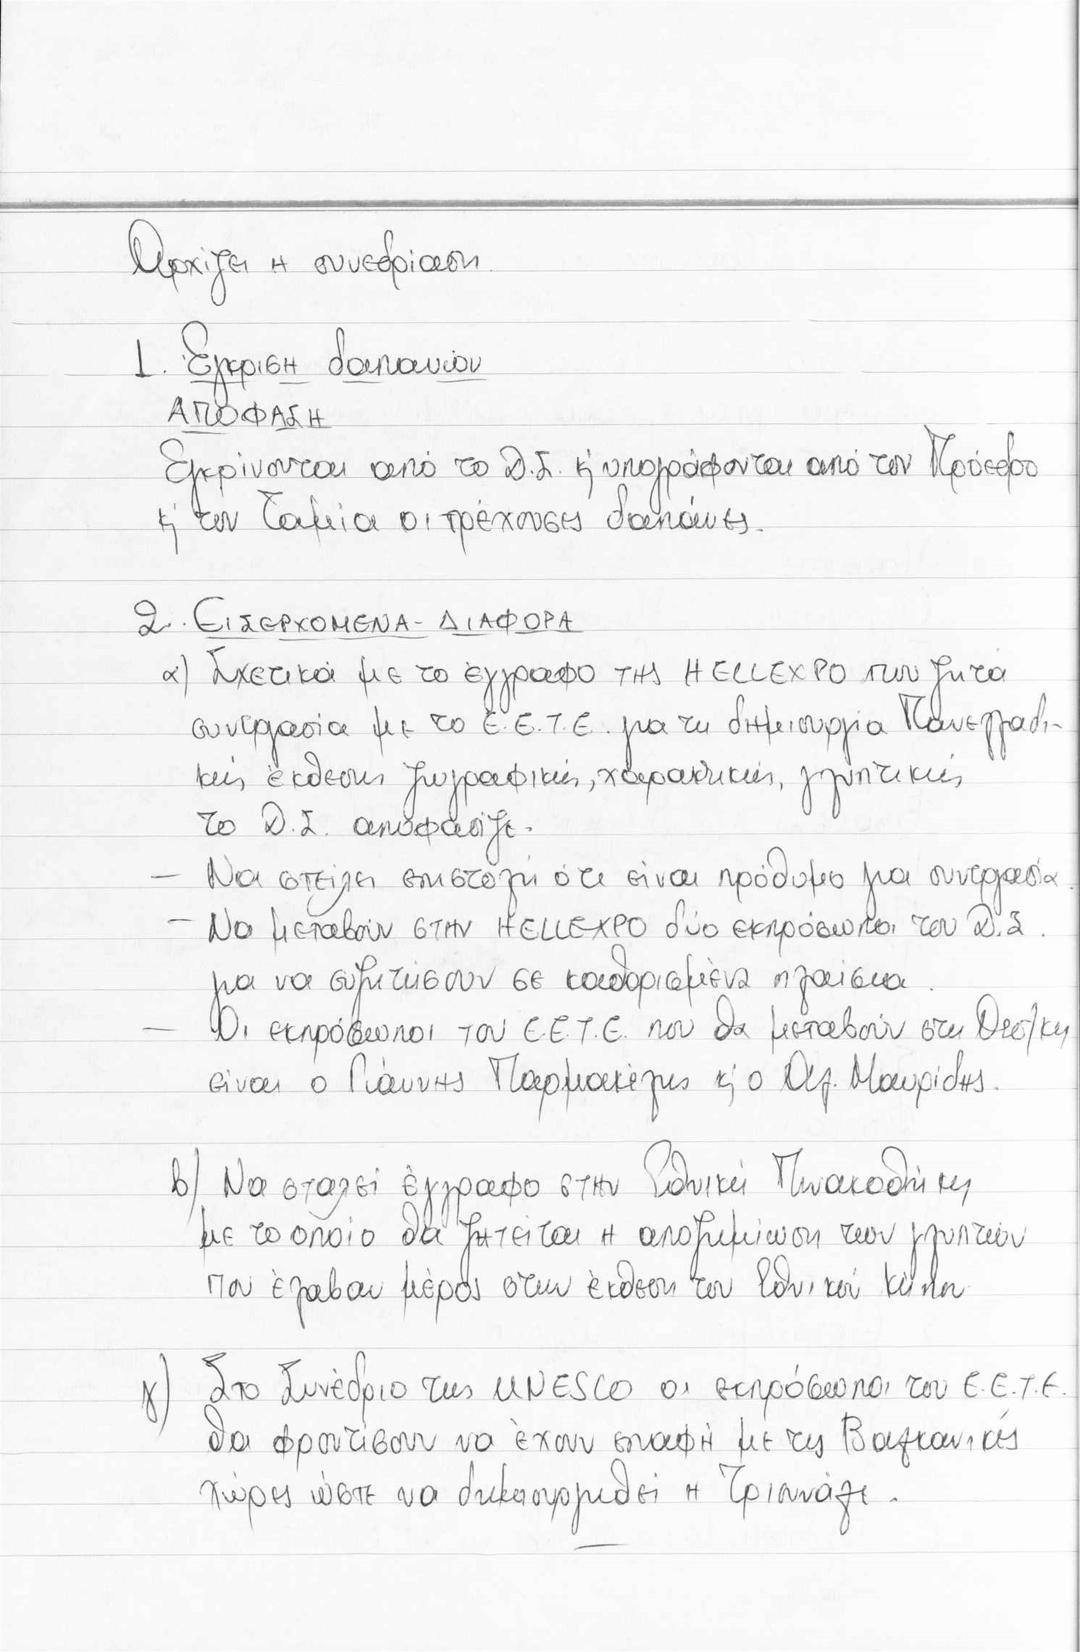 Αρχίζει η συνεδρίαση.
1. Έγκριση δαπανών
ΑΠΟΦΑΣΗ
Εγκρίνονται από το Δ.Σ. κ' υπογράφονται από τον Πρόεδρο
κ' τον Ταμία οι τρέχουσες δαπάνες.
2. ΕΙΣΕΡΧΟΜΕΝΑ - ΔΙΑΦΟΡΑ
α) Σχετικά με το έγγραφο της HELLEXPO που ζητά
συνεργασία με το Ε.Ε.Τ.Ε. για τη δημιουργία Πανελλαδι-
κής έκθεσης ζωγραφικής, χαρακτικής, γλυπτικής
το Δ.Σ. αποφάσιζε.
— Να στείλει επιστολή ότι είναι πρόθυμο για συνεργασία.
— Να μεταβούν στην HELLEXPO δύο εκπρόσωποι του Δ.Σ.
για να συζητήσουν σε καθορισμένα πλαίσια.
— Οι εκπρόσωποι του Ε.Ε.Τ.Ε. που θα μεταβούν στη Θεσ/κη
είναι ο Γιάννης Παρμακέλης κ' ο Μαυρίδης.
β) Να σταλεί έγγραφο στην Εθνική Πινακοθήκη
με το οποίο θα ζητείται η αποζημίωση των γλυπτών
που έλαβαν μέρος στην έκθεση του Εθνικού Κήπου
γ) Στο Συνέδριο της UNESCO οι εκπρόσωποι του Ε.Ε.Τ.Ε.
θα φροντίσουν να έχουν επαφή με τις Βαλκανικές
χώρες ώστε να δημιουργηθεί η Τριεννάλε.